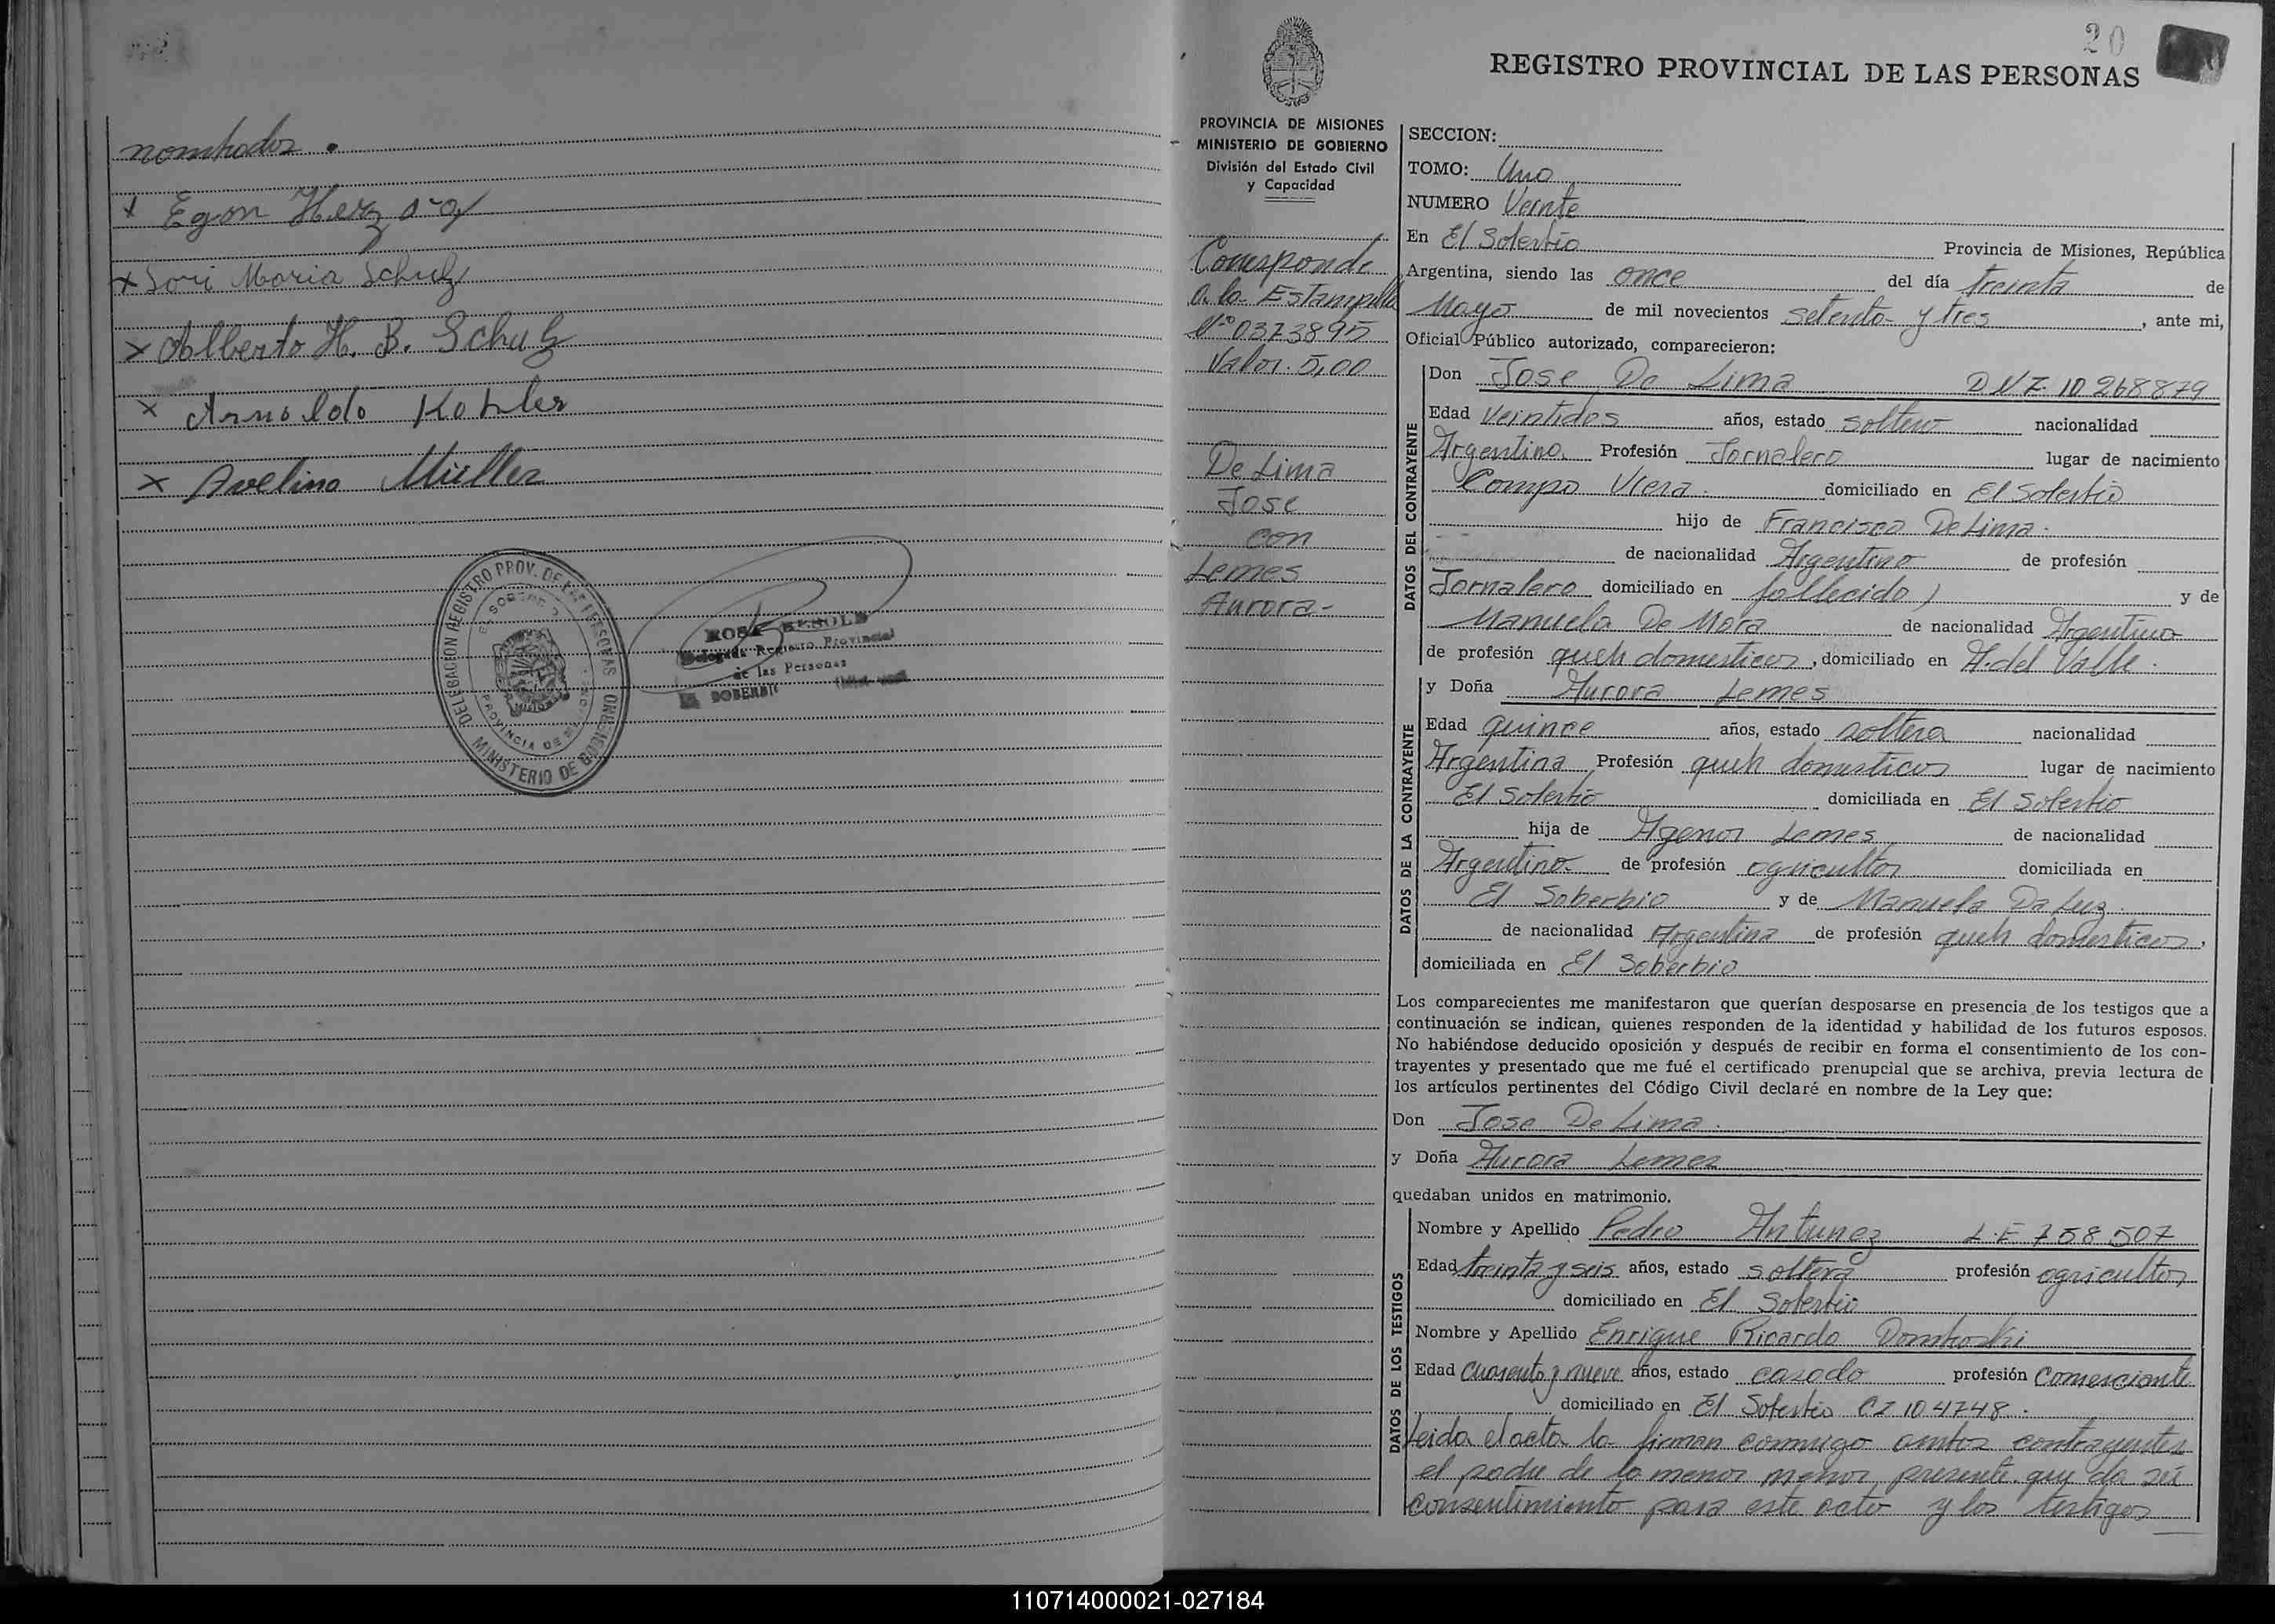 nombrados.
x Egon Herzog
x Lori Maria Schulz
x Alberto H. B. Schulz
x Arnoldo Kohler
x Avelino Müller
DELEGACION REGISTRO PROV. DE LAS PERSONAS
MINISTERIO DE GOBIERNO
PROVINCIA DE
ROSA
Delegada Registro Provincial
de las Personas
20
REGISTRO PROVINCIAL DE LAS PERSONAS
PROVINCIA DE MISIONES
MINISTERIO DE GOBIERNO
División del Estado Civil
y Capacidad
Corresponde
a la Estampilla
Nº 0373895
Valor 5,00
De Lima
Jose
con
Lemes
Aurora-
SECCION:
TOMO: Uno
NUMERO Veinte
En El Soberbio Provincia de Misiones, República
Argentina, siendo las once del día treinta de
Mayo de mil novecientos setenta y tres, ante mi,
Oficial Público autorizado, comparecieron:
DATOS DEL CONTRAYENTE
Don Jose De Lima DNI 10 268879
Edad Veintidos años, estado soltero nacionalidad
Argentino Profesión Jornalero lugar de nacimiento
Campo Viera domiciliado en El Soberbio
hijo de Francisco De Lima
de nacionalidad Argentino de profesión
Jornalero domiciliado en fallecido) y de
Manuela De Mora de nacionalidad Argentina
de profesión queh domesticos, domiciliado en A. del Valle
DATOS DE LA CONTRAYENTE
y Doña Aurora Lemes
Edad quince años, estado soltera nacionalidad
Argentina Profesión queh domesticos lugar de nacimiento
El Soberbio domiciliada en El Soberbio
hija de Agenor Lemes de nacionalidad
Argentino de profesión agricultor domiciliada en
El Soberbio y de Manuela Da Luz
de nacionalidad Argentina de profesión queh domesticos,
domiciliada en El Soberbio
Los comparecientes me manifestaron que querían desposarse en presencia de los testigos que a
continuación se indican, quienes responden de la identidad y habilidad de los futuros esposos.
No habiéndose deducido oposición y después de recibir en forma el consentimiento de los con-
trayentes y presentado que me fué el certificado prenupcial que se archiva, previa lectura de
los artículos pertinentes del Código Civil declaré en nombre de la Ley que:
Don Jose De Lima
y Doña Aurora Lemes
quedaban unidos en matrimonio.
DATOS DE LOS TESTIGOS
Nombre y Apellido Pedro Antunez L.E 758 507
Edad treinta y seis años, estado soltero profesión agricultor
domiciliado en El Soberbio
Nombre y Apellido Enrique Ricardo Dombroski
Edad cuarenta y nueve años, estado casado profesión Comerciante
domiciliado en El Soberbio CI 104748.
Leida el acta la firman conmigo ambos contrayentes
el padre de la menor menor presente que da su
consentimiento para este acto y los testigos
110714000021-027184